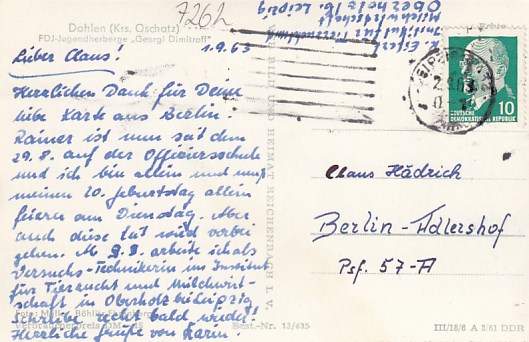 7262h
Dahlen (Krs. Oschatz)
FDJ-Jugendherberge „Georgi Dimitroff"
Lieber Claus! 1.9.63
Herzlichen Dank für Deine
liebe Karte aus Berlin.
Rainer ist nun seit dem
29.8. auf der Offiziersschule
und ich bin allein und muß
meinen 20. Geburtstag allein
feiern am Dienstag. Aber
auch diese Zeit wird vorbei
gehen. Ab 9.9. arbeite ich als
Versuchs-Technikerin im Institut
für Tierzucht und Milchwirt-
schaft in Oberholz bei Leipzig.
Schreibe recht bald wieder!
Herzliche Grüße von Karin.
Foto: Müller, Böhlitz-Ehrenberg
Verbraucherpreis DM
Best.-Nr. 13/635
BILD UND HEIMAT REICHENBACH I. V.
Institut für Tierzüchtung
Milchwirtschaft
Oberholz üb. Leipzig
LEIPZIG
2.9.63
DEUTSCHE
DEMOKRATISCHE REPUBLIK
10
Claus Hädrich
Berlin-Adlershof
Psf. 57-A
III/18/6 A 3/61 DDR